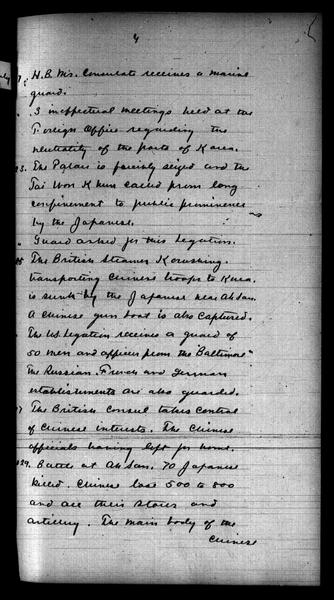 4
H.B.M's. Consulate receives a marine
guard.
3 ineffectual meetings held at the
Foreign Office regarding the
neutrality of the ports of Korea.
23. The Palace is forcibly seized and the
Tai Won Khun called from long
confinement to public prominence
by the Japanese.
Guard asked for this Legation.
The British Steamer Kowshing.
transporting Chinese troops to Korea.
is sunk by the Japanese near Ah San.
A Chinese gun boat is also captured.
The U.S. Legation receives a guard of
50 men and officers from the "Baltimore"
The Russian. French and German
establishments are also guarded.
The British Consul takes control
of Chinese interests. The Chinese
officials having left for home.
29. Battle at Ah San. 70 Japanese
killed. Chinese lose 500 to 800
and all their stores and
artillery. The main body of the
Chinese